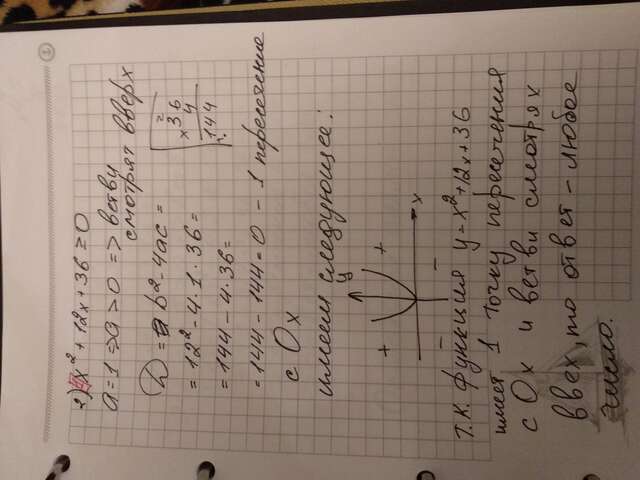 2) x² + 12x + 36 ≥ 0
a = 1 => a > 0 => ветви
смотрят вверх
D = b² - 4ac =
= 12² - 4 · 1 · 36 =
= 144 - 4 · 36 =
= 144 - 144 = 0 - 1 пересечение
с Ox
2
x 36
4
144
имеем следующее:
y
+ +
x
- -
Т.к. функция y = x² + 12x + 36
имеет 1 точку пересечения
с Ox и ветви смотрях
ввех, то ответ - любое
число.